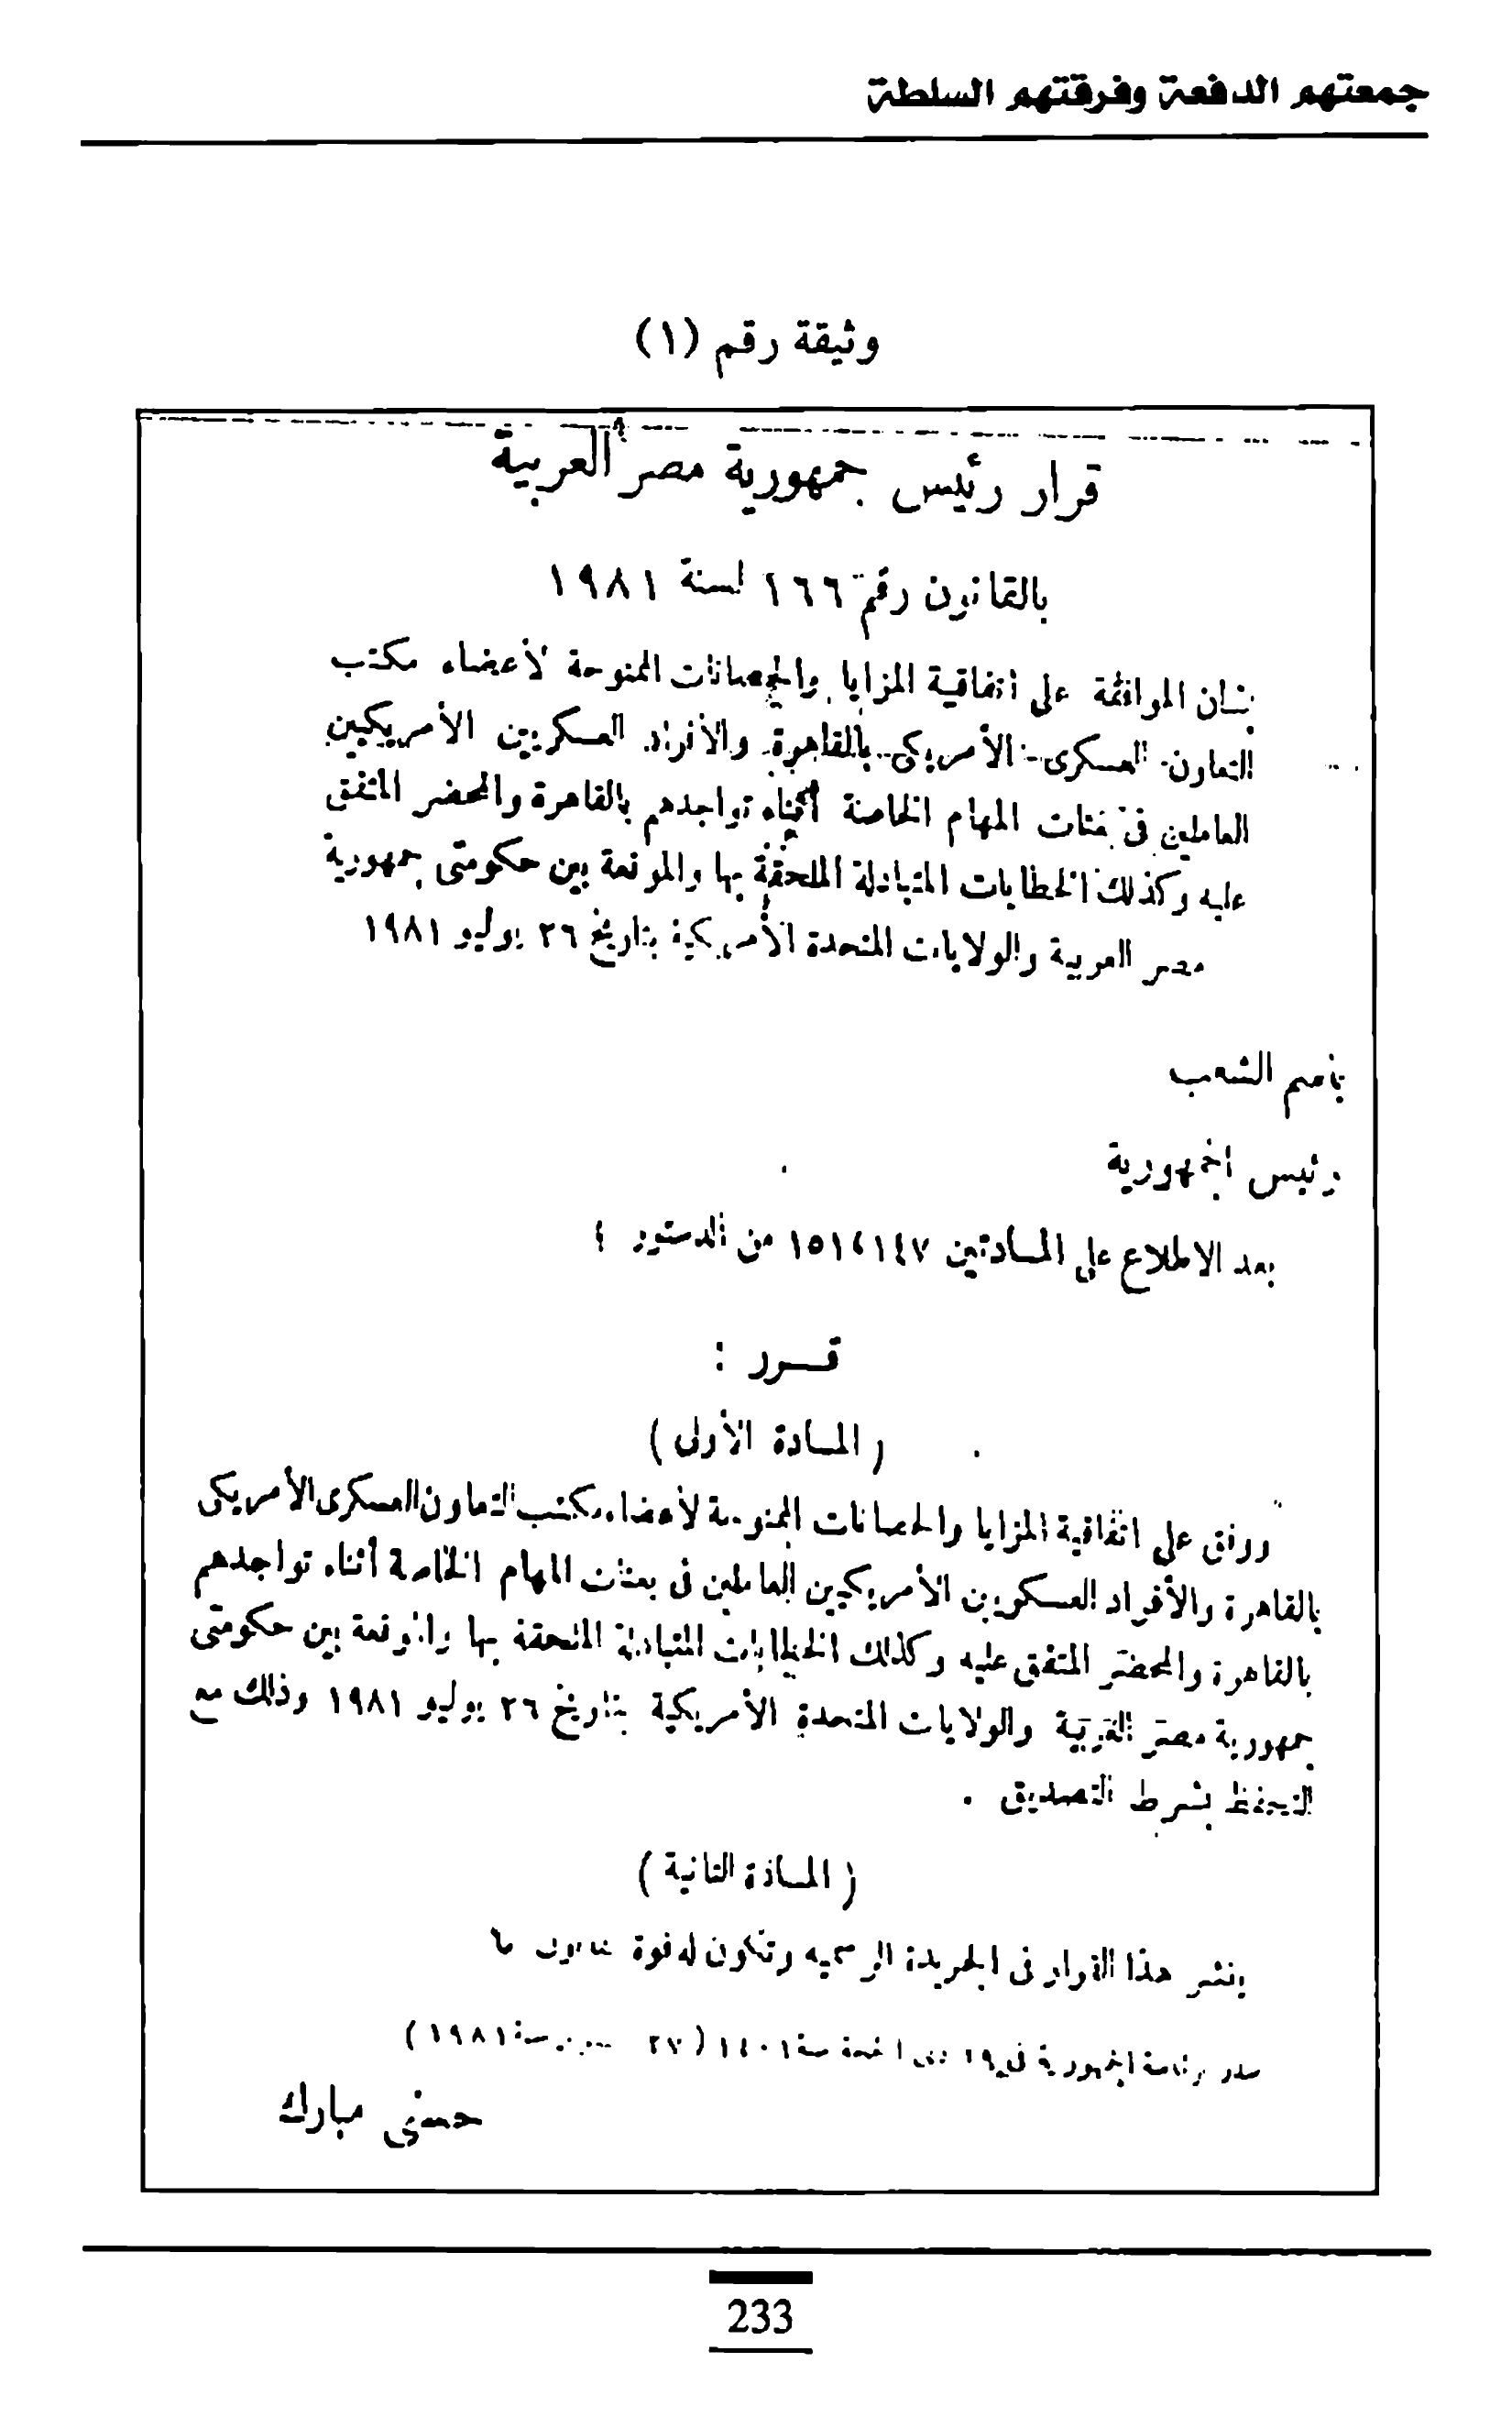 جمعتهم الدفعة وفرقتهم السلطة
وثيقة رقم (١)
قرار رئيس جمهورية مصر العربية
بالقانون رقم ١٦٦ لسنة ١٩٨١
بشأن الموافقة على اتفاقية المزايا والحصانات الممنوحة لأعضاء مكتب
التعاون العسكرى الأمريكى بالقاهرة والأفراد العسكريين الأمريكيين
العاملين فى بعثات المهام الخاصة أثناء تواجدهم بالقاهرة والمحضر المتفق
عليه وكذلك الخطابات المتبادلة الملحقة بها والموقعة بين حكومتى جمهورية
مصر العربية والولايات المتحدة الأمريكية بتاريخ ٢٦ يوليو ١٩٨١
باسم الشعب
رئيس الجمهورية
بعد الاطلاع على المادتين ١٤٧، ١٥١ من الدستور ؛
قـــرر :
(المادة الأولى)
ووفق على اتفاقية المزايا والحصانات الممنوحة لأعضاء مكتب التعاون العسكرى الأمريكى
بالقاهرة والأفراد العسكريين الأمريكيين العاملين فى بعثات المهام الخاصة أثناء تواجدهم
بالقاهرة والمحضر المتفق عليه وكذلك الخطابات المتبادلة الملحقة بها والموقعة بين حكومتى
جمهورية مصر العربية والولايات المتحدة الأمريكية بتاريخ ٢٦ يوليو ١٩٨١ وذلك مع
التحفظ بشرط التصديق .
(المادة الثانية)
ينشر هذا القرار فى الجريدة الرسمية وتكون له قوة القانون ما
صدر برئاسة الجمهورية فى ٢٩ ذى الحجة سنة ١٤٠١ (٢٧ سنة ١٩٨١)
حسنى مبارك
233